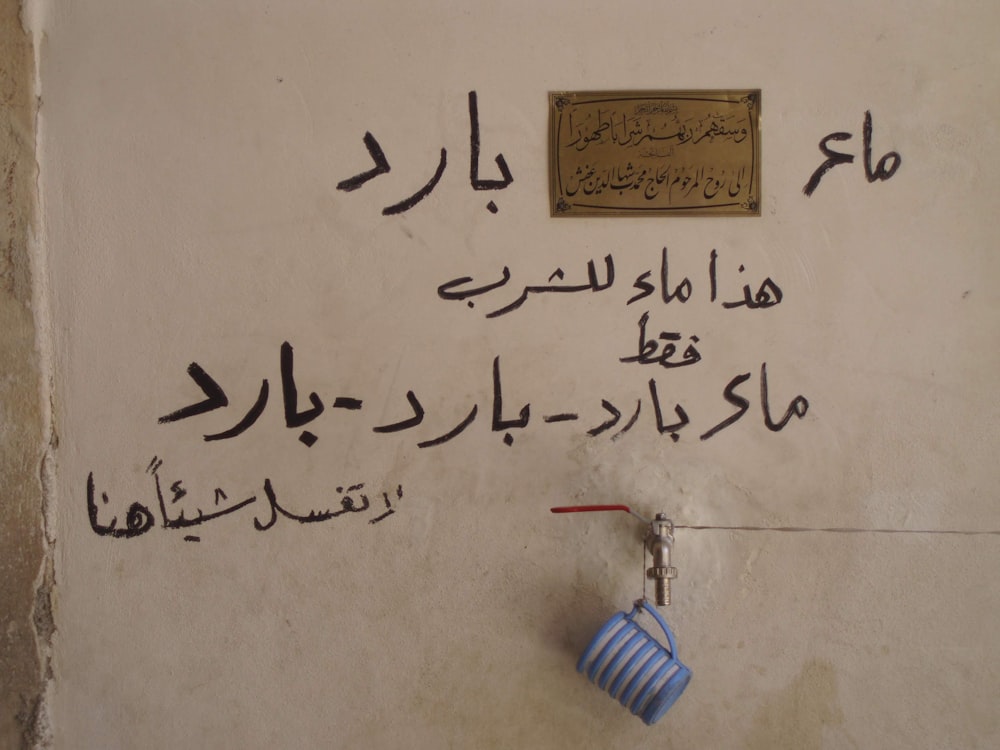 ماء بارد
وسقٰهم ربهم شرابا طهورا
إلى روح المرحوم الحاج محمد شهاب الدين
هذا ماء للشرب
فقط
ماء بارد - بارد - بارد
لا تغسل شيئاً هنا